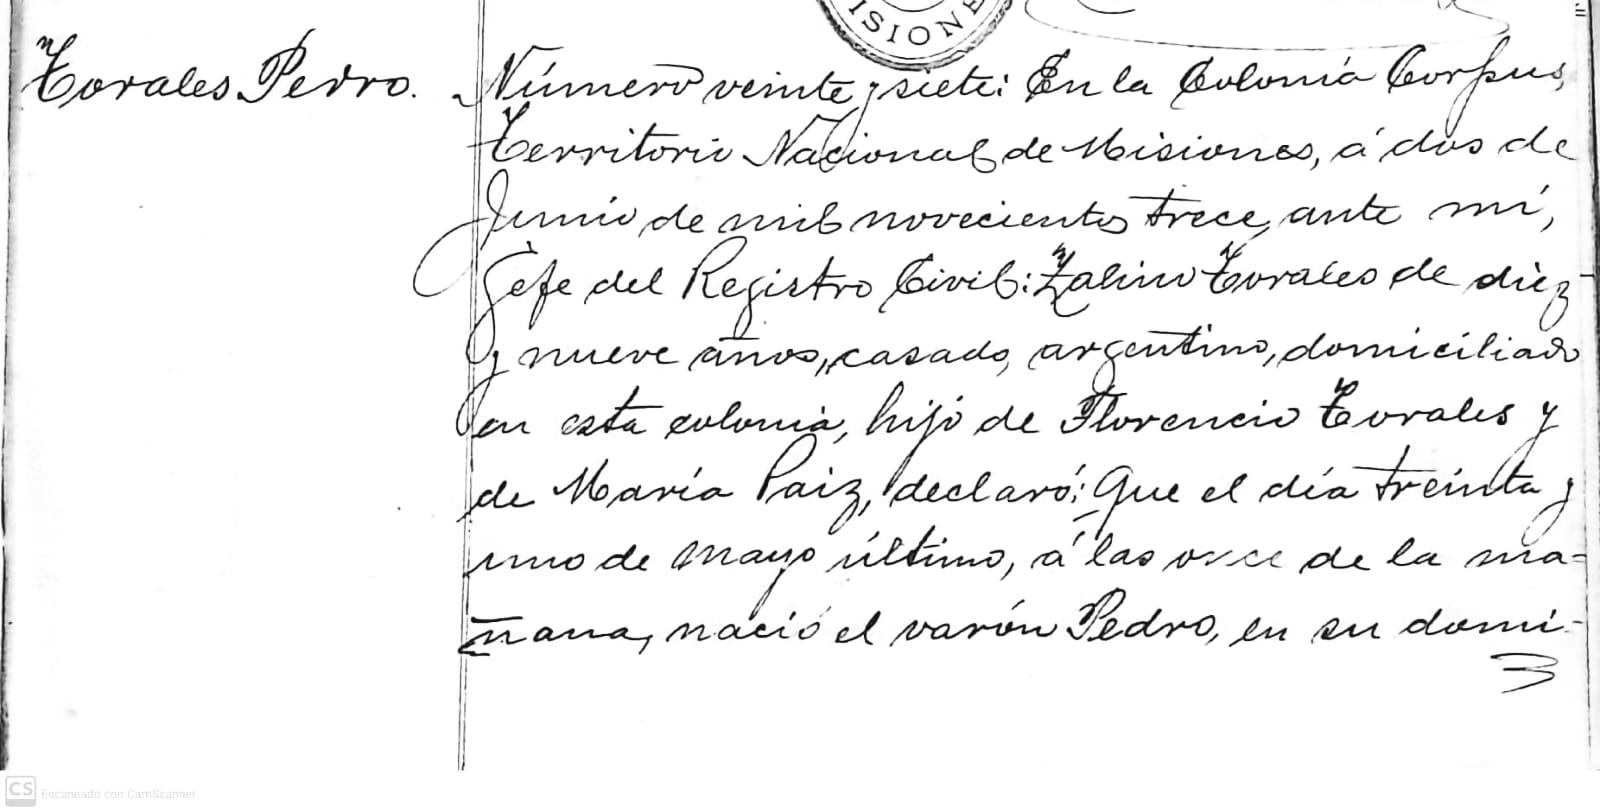 ISIONE
Torales Pedro.
Número veinte y siete: En la Colonia Corpus,
Territorio Nacional de Misiones, á dos de
Junio de mil novecientos trece, ante mí,
Gefe del Registro Civil: Zalino Torales de diez
y nueve años, casado, argentino, domiciliado
en esta colonia, hijo de Florencio Torales y
de María Paiz, declaró: Que el día treinta y
uno de mayo último, á las once de la ma=
ñana, nació el varón Pedro, en su domi=
CS Escaneado con CamScanner